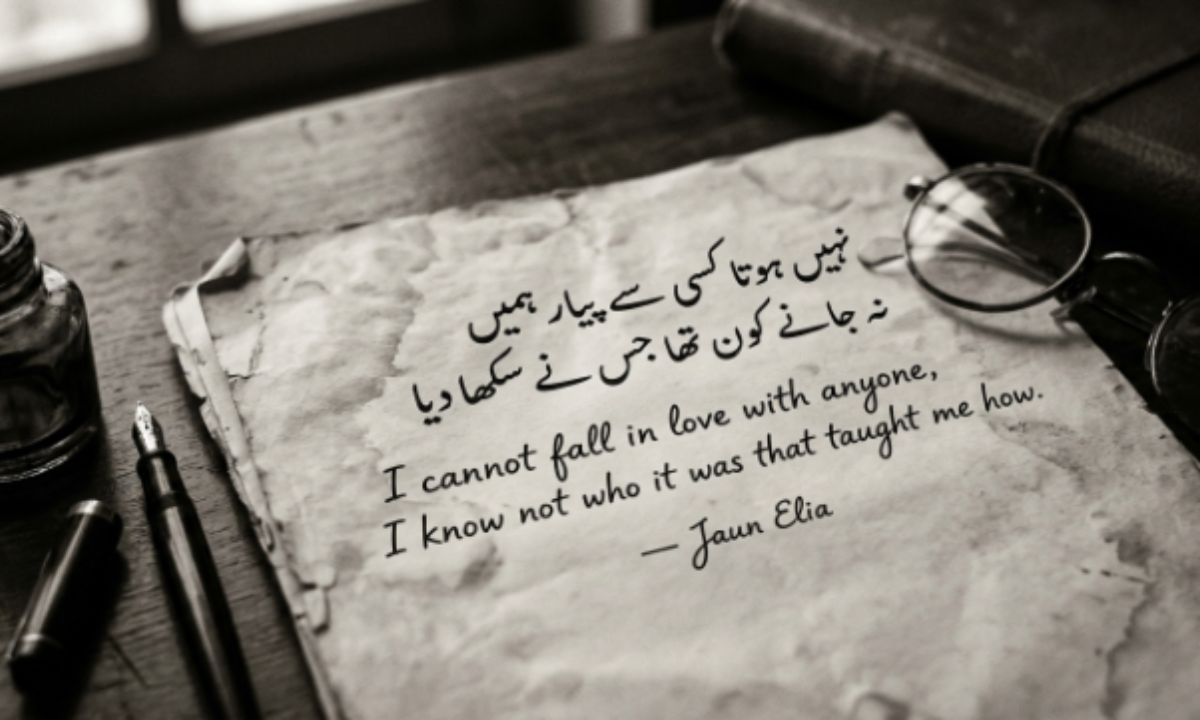 نہیں ہوتا کسی سے پیار ہمیں
نہ جانے کون تھا جس نے سکھا دیا
I cannot fall in love with anyone,
I know not who it was that taught me how.
— Jaun Elia